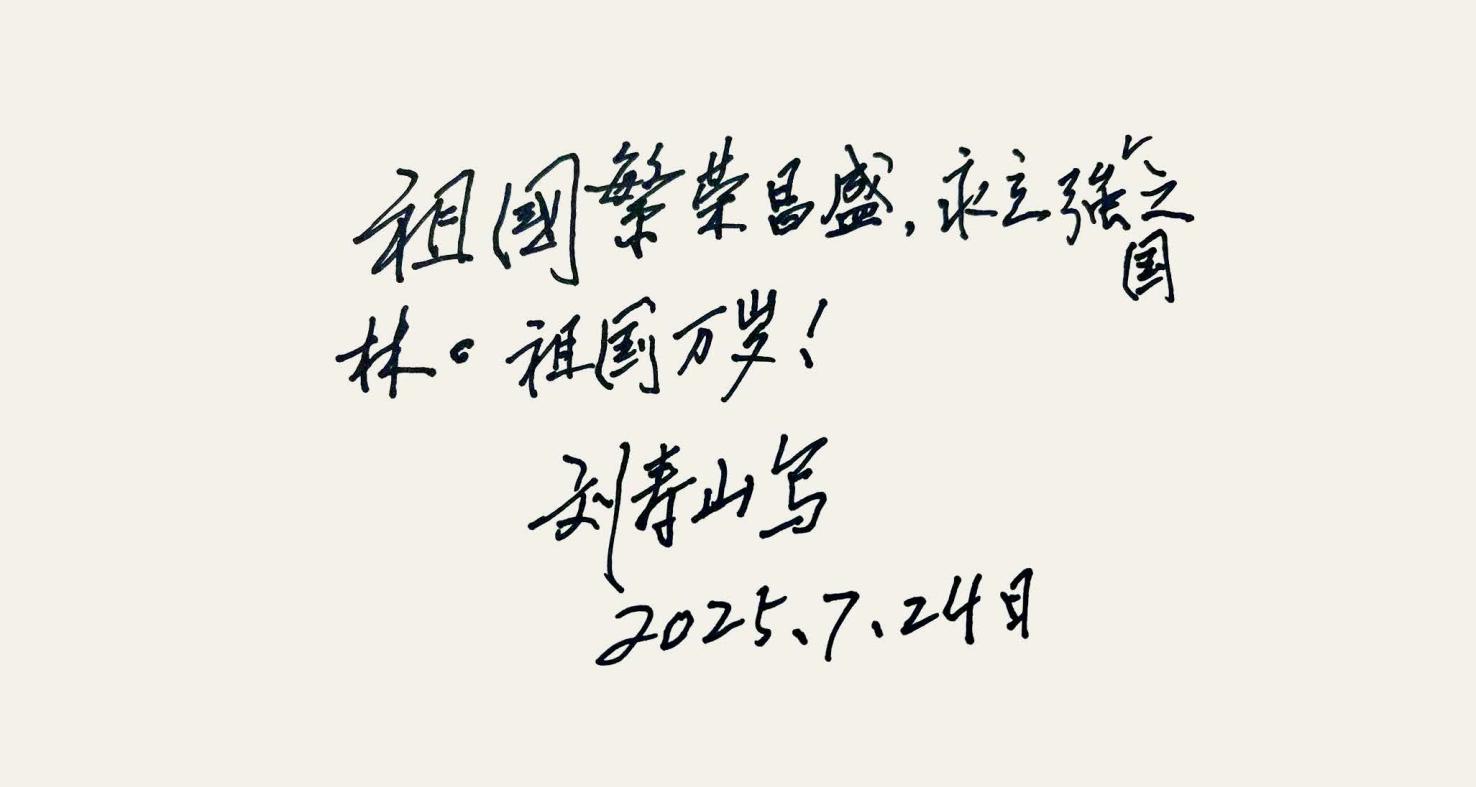 祖國繁荣昌盛,永立强国之
林。祖国万岁!
刘寿山写
2025、7、24日